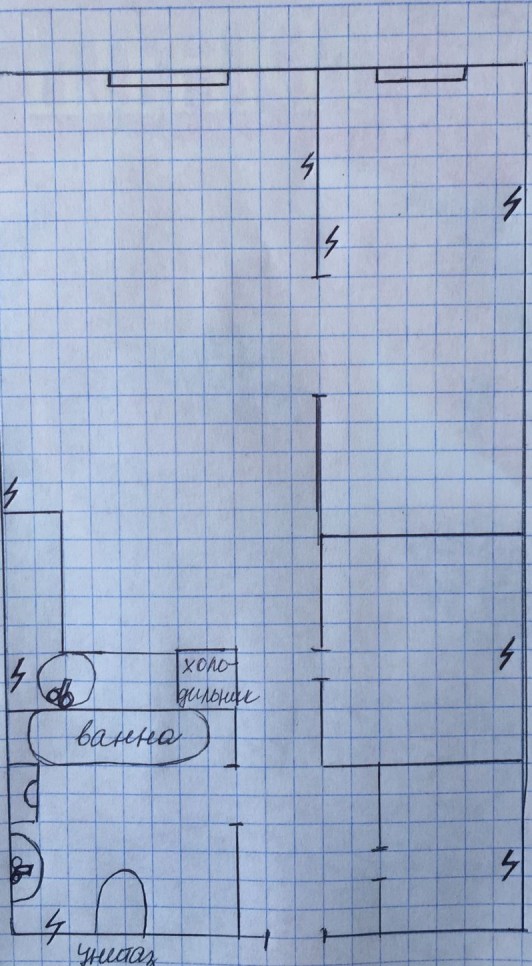 холо-
дильник
ванна
унитаз